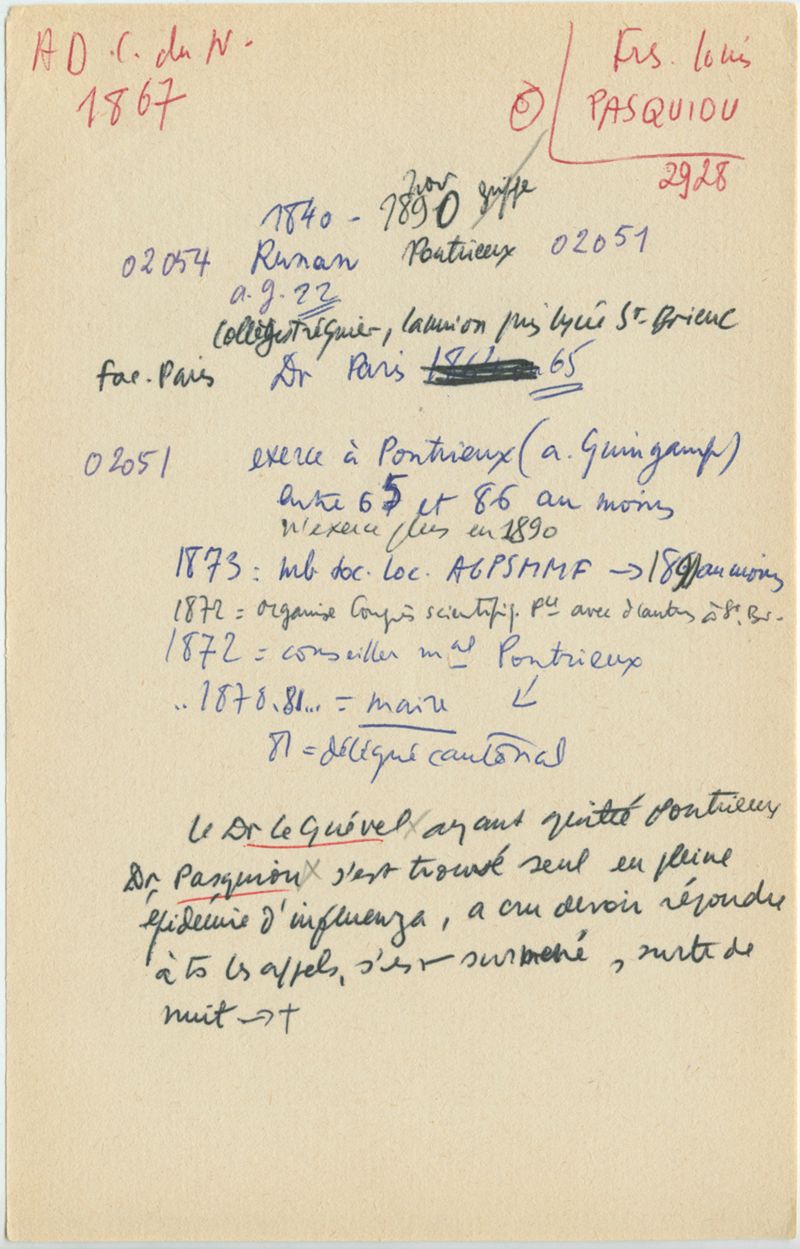 A D . C. du N.
1867
Frs. Louis
⑥ PASQUIOU
2928
Janv grippe
1840 - 1890
02054 Runan Pontrieux 02051
a. g. 22
Collèges Tréguier, Lannion puis lycée St-Brieuc
Fac. Paris Dr Paris 65
02051 exerce à Pontrieux (a. Guingamp)
entre 65 et 86 au moins
n'exerce plus en 1890
1873 = mb. soc. loc. AGPSMMF → 1891 au moins
1872 = organise Congrès scientifiq. avec d'autres à St. Br.
1872 = conseiller mal Pontrieux
.. 1878.81... = maire ↙
81 = délégué cantonal
le Dr Le Guével x ayant quitté Pontrieux
Dr. Pasquiou x s'est trouvé seul en pleine
épidémie d'influenza, a cru devoir répondre
à ts les appels, s'est surmené, sorte de
nuit → +